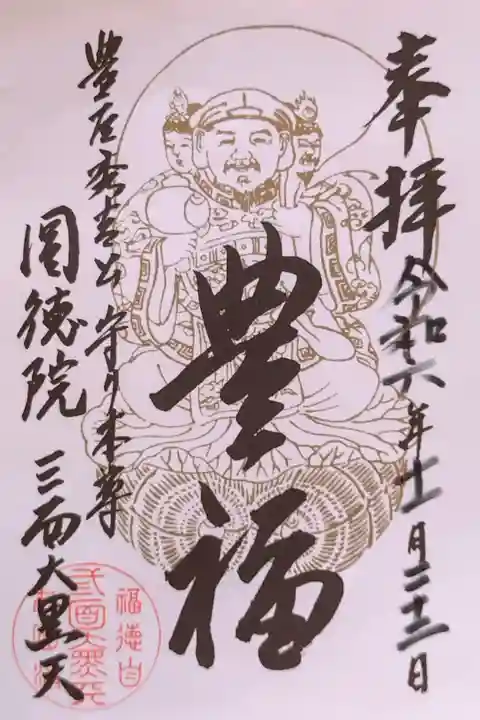 奉拝 令和六年十一月二十三日
豊福
豊臣秀吉公 守り本尊
圓徳院 三面大黒天
福徳自
三面大黒天